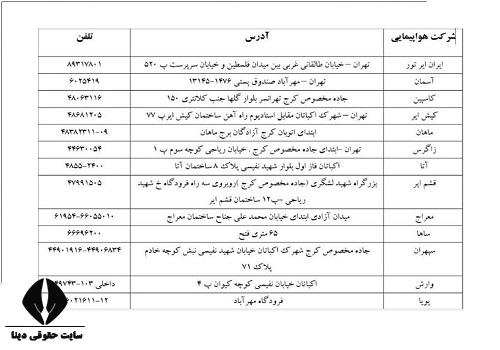 شرکت هواپیمایی آدرس تلفن
ایران ایر تور تهران – خیابان طالقانی غربی بین میدان فلسطین و خیابان سرپرست پ ۵۲۰ ۸۹۳۱۷۸۰۱
آسمان تهران – مهرآباد صندوق پستی ۱۴۷۶-۱۳۱۴۵ ۶۰۲۵۴۱۹
کاسپین جاده مخصوص کرج تهرانسر بلوار گلها جنب کلانتری ۱۵۰ ۴۸۰۶۳۱۱۶
کیش ایر تهران – شهرک اکباتان مقابل استادیوم راه آهن ساختمان کیش ایرپ ۷۷ ۴۸۶۸۱۲۰۵
ماهان ابتدای اتوبان کرج آزادگان برج ماهان ۴۸۳۸۲۳۱۱-۰۹
زاگرس تهران –ابتدای جاده مخصوص کرج . خیابان ریاحی کوچه سوم پ ۱ ۴۴۶۳۰۰۵۴
آتا اکباتان فاز اول بلوار شهید نفیسی پلاک ۸ ساختمان آتا ۴۸۵۵-۲۴۰۰
قشم ایر بزرگراه شهید لشگری (جاده مخصوص کرج )روبروی سه راه فرودگاه خ شهید ۴۷۹۹۱۵۰۵
ریاحی –پ۱۲ ساختمان قشم ایر
معراج میدان آزادی ابتدای خیابان محمد علی جناح ساختمان معراج ۶۱۹۵۴-۶۶۰۵۵۰۱۰
ساها ۶۵ متری فتح ۶۶۶۹۶۲۰۰
سپهران جاده مخصوص کرج شهرک اکباتان خیابان شهید نفیسی نبش کوچه خادم ۴۴۹۰۱۹۱۶-۴۴۹۰۶۸۳۴
پلاک ۷۱
وارش اکباتان خیابان نفیسی کوچه کیوان پ ۴ داخلی ۱۰۳-۴۹۷۴۳
پویا فرودگاه مهرآباد ۶۰۲۱۶۱۱-۱۲
سایت حقوقی دینا